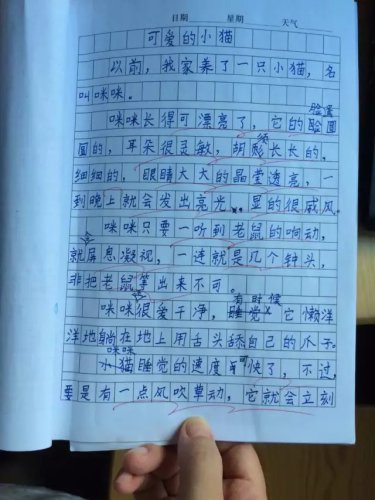 日期 星期 天气
可爱的小猫
以前，我家养了一只小猫，名
叫咪咪。
咪咪长得可漂亮了，它的脸圆
脸蛋
圆的，耳朵很灵敏，胡须长长的，
细细的，眼睛大大的晶莹透亮，一
到晚上就会发出亮光，显的很威风。
咪咪只要一听到老鼠的响动，
就会屏息凝视，一连就是几个钟头，
非把老鼠等出来不可。
咪咪很爱干净，有时候它懒洋
洋地躺在地上用舌头舔自己的爪子。
咪咪
小猫睡觉的速度可快了，不过，
要是有一点风吹草动，它就会立刻